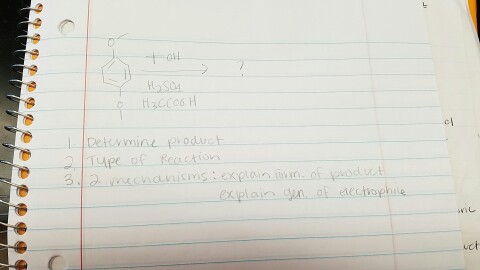 O
OH
?
H2SO4
H3CCOOH
O
1 Determine product
2 Type of Reaction
3. 2 mechanisms: explain form. of product
explain gen. of electrophile